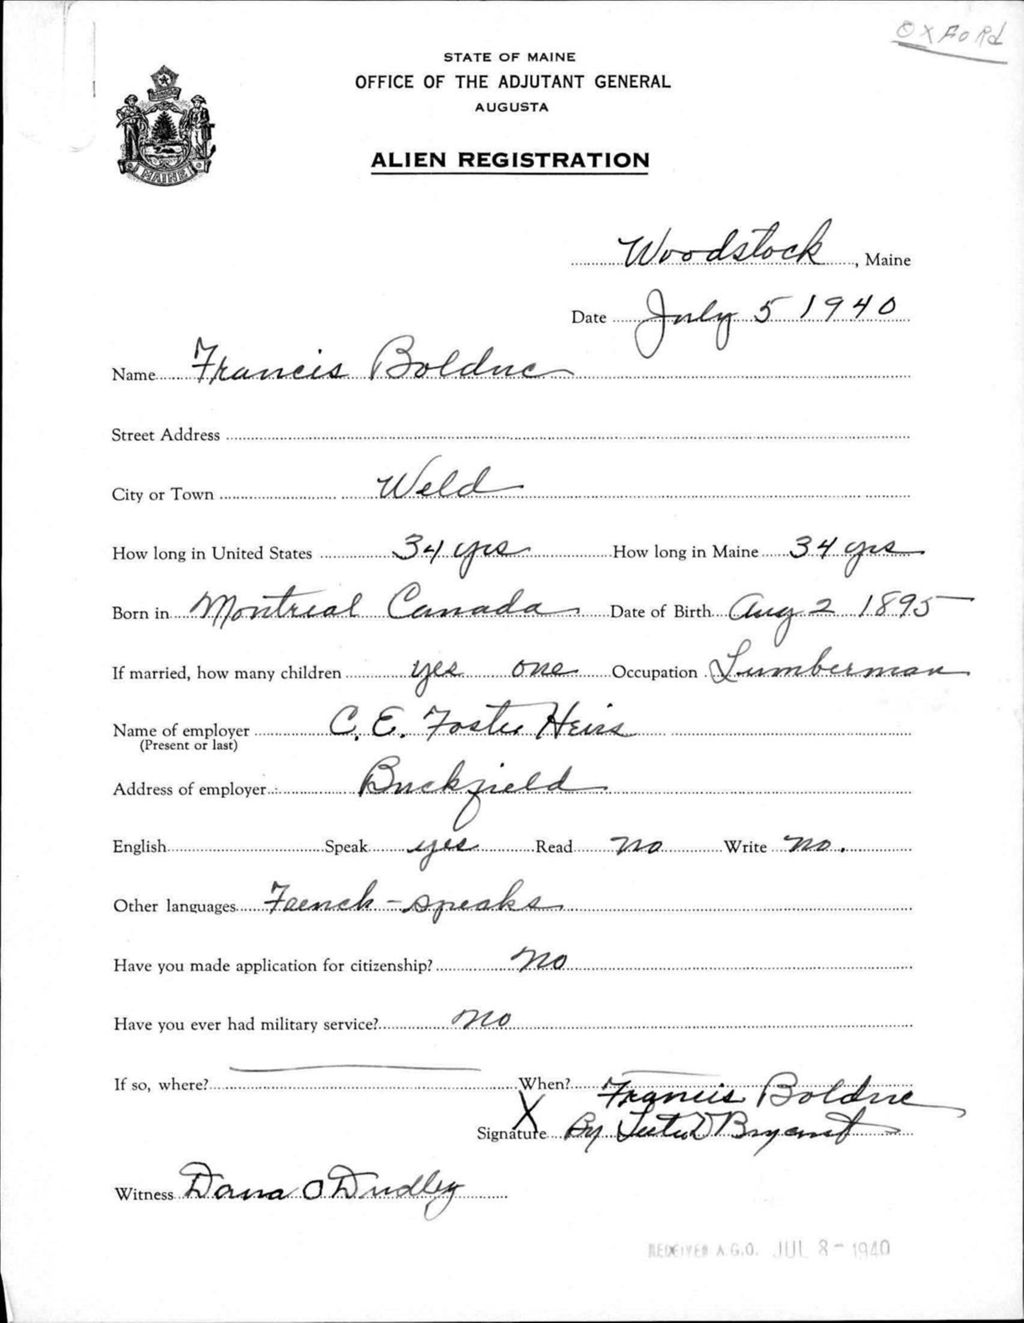 OXFORd
STATE OF MAINE
OFFICE OF THE ADJUTANT GENERAL
AUGUSTA
ALIEN REGISTRATION
MAINE
Woodstock, Maine
Date July 5 1940
Name Francis Bolduc
Street Address
City or Town Weld
How long in United States 34 yrs How long in Maine 34 yrs
Born in Montreal Canada Date of Birth Aug 2 1895
If married, how many children yes one Occupation Lumberman
Name of employer C. E. Foster Heirs
(Present or last)
Address of employer Buckfield
English Speak yes Read no Write no.
Other languages French - speaks
Have you made application for citizenship? no
Have you ever had military service? no
If so, where? When?
Francis Bolduc
X
Signature By Bryant
Witness Dana O Dudley
RECEIVED A.G.O. JUL 8 - 1940